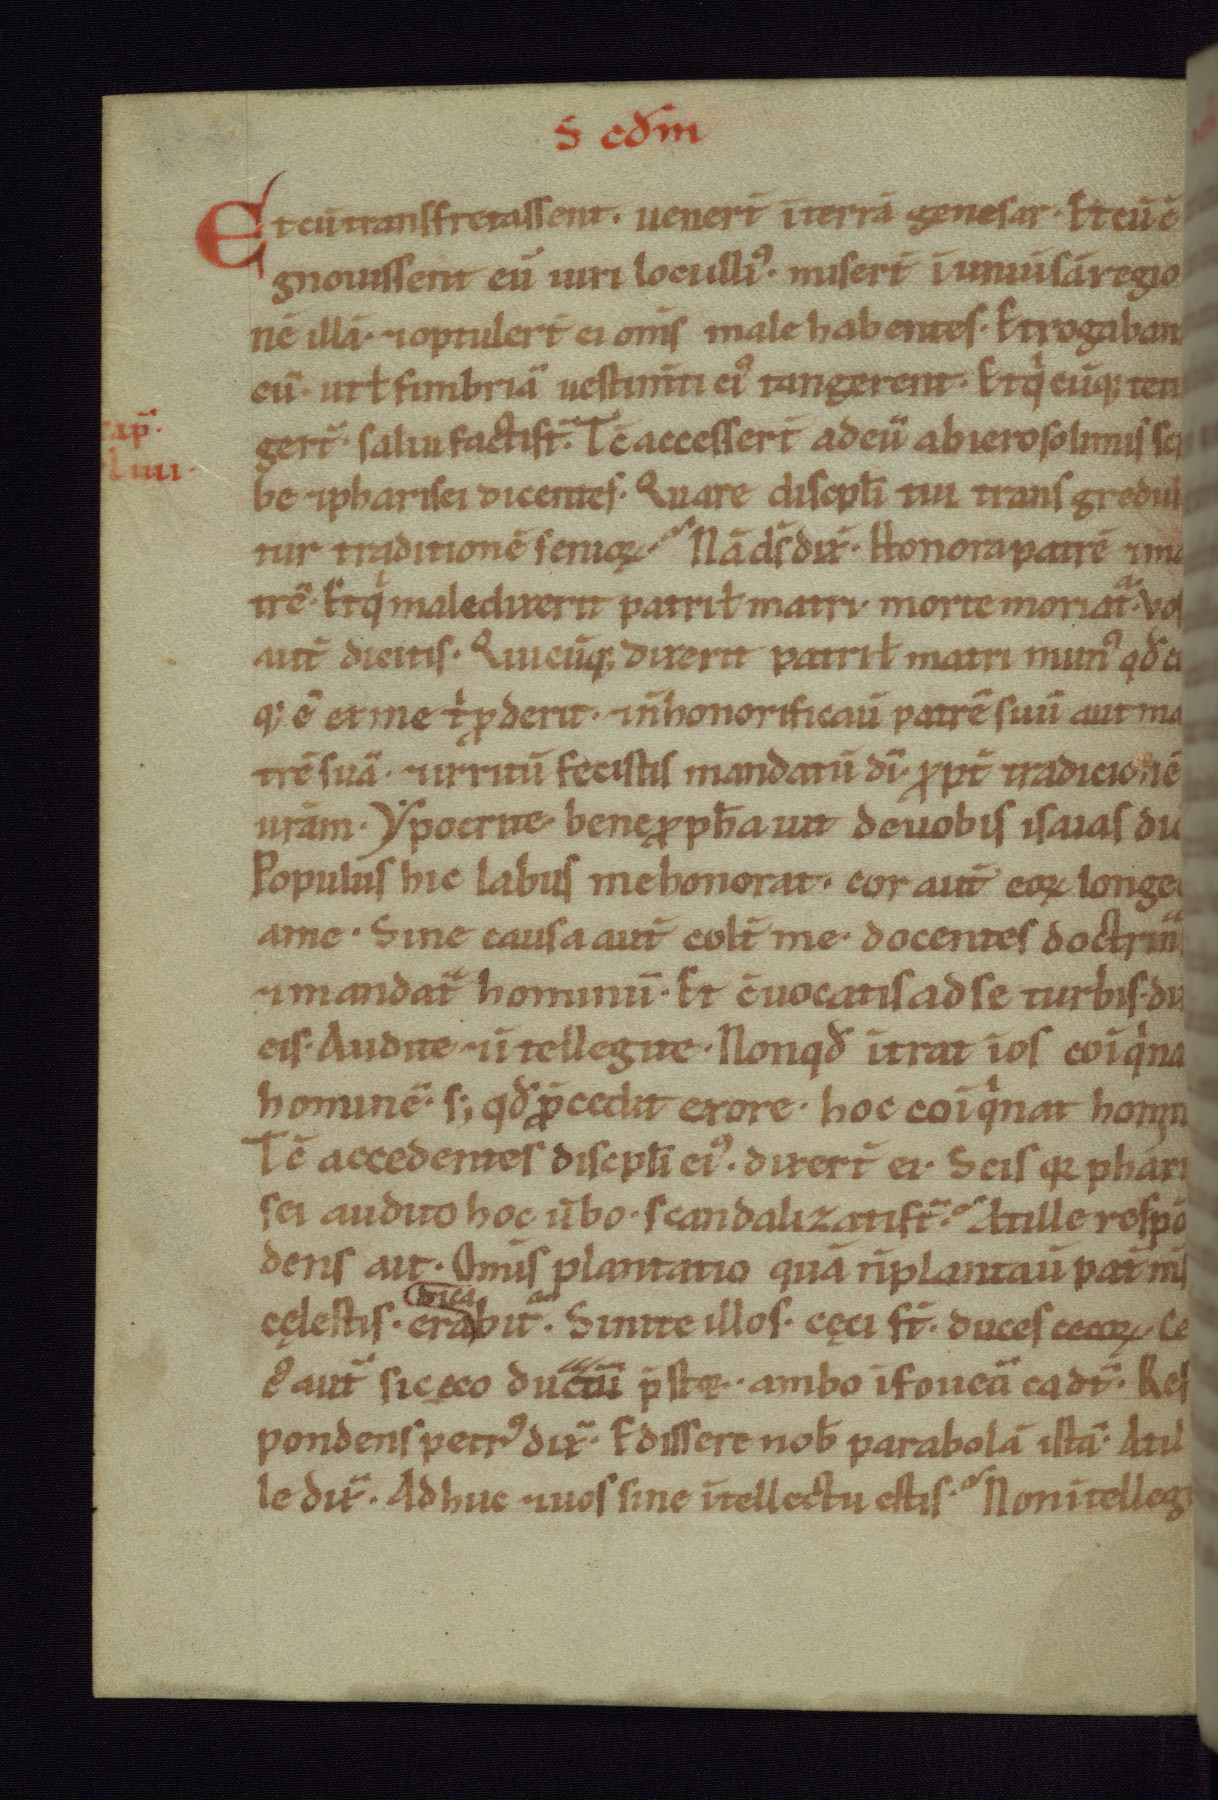 S ecdm̄
Et cū transfretassent · uenert̄ ī terrā genesar · Et cū c̄
gnouissent eū uiri loci illiꝰ · misert̄ ī uniuīsā regio
nē illā · ⁊ optulert̄ ei om̄s male habentes · Et rogaban
eū · ut ł fimbriā uestim̄ti eiꝰ tangerent · Et qͥ cūqꝫ teti
gert̄ · salui facti st̄ · Tc̄ accessert̄ ad eū ab ierosolimis sc
cap̄
Liiii ·
be ⁊ pharisei dicentes · Quare discipłi tui transgrediū
tur traditionē senioꝝ · Nā ds̄ dix̄ · Honora patrē ⁊ ma
trē · Et qͥ maledixerit patri ł matri · morte moriat̄ · Vos
aut̄ dicitis · Quicūqꝫ dixerit patri ł matri munꝰ qđ c
qꝫ ē ex me tͥ ꝓderit · ⁊ n̄ honorificaū patrē suū aut ma
trē suā · ⁊ irritū fecistis mandatū dī · ꝓpt̄ tradicionē
urām · Ypocrite · bene ꝓph̄auit de uobis isaias dic
Populus hic labiis me honorat · cor aut̄ eoꝝ longe
a me · Sine causa aut̄ colt̄ me · docentes doctrinās
⁊ mandat̄ hominū · Et c̄uocatis ad se turbis · dix
eis · Audite ⁊ ītellegite · Non qđ ītrat ī os coīqͥna
hominē · sꝫ qđ ꝓcedit ex ore · hoc coīqͥnat homin
Tc̄ accedentes discipłi eiꝰ · dixert̄ ei · Scis qꝛ phari
sei audito hoc ūbo · scandalizati st̄ · At ille respō
dens ait · Om̄is plantatio quā n̄ plantaū pat̄ m̄s
dica
cęlestis · erabit̄ · Sinite illos · cęci st̄ · duces cecoꝝ · Ce
cꝰ aut̄ si ceco ductū p̄stet · ambo ī foueā cadt̄ · Res
pondens petrꝰ dix̄ · Edissere nob̄ parabolā istā · At il
le dix̄ · Adhuc ⁊ uos sine ītellectu estis · Non ītelleg